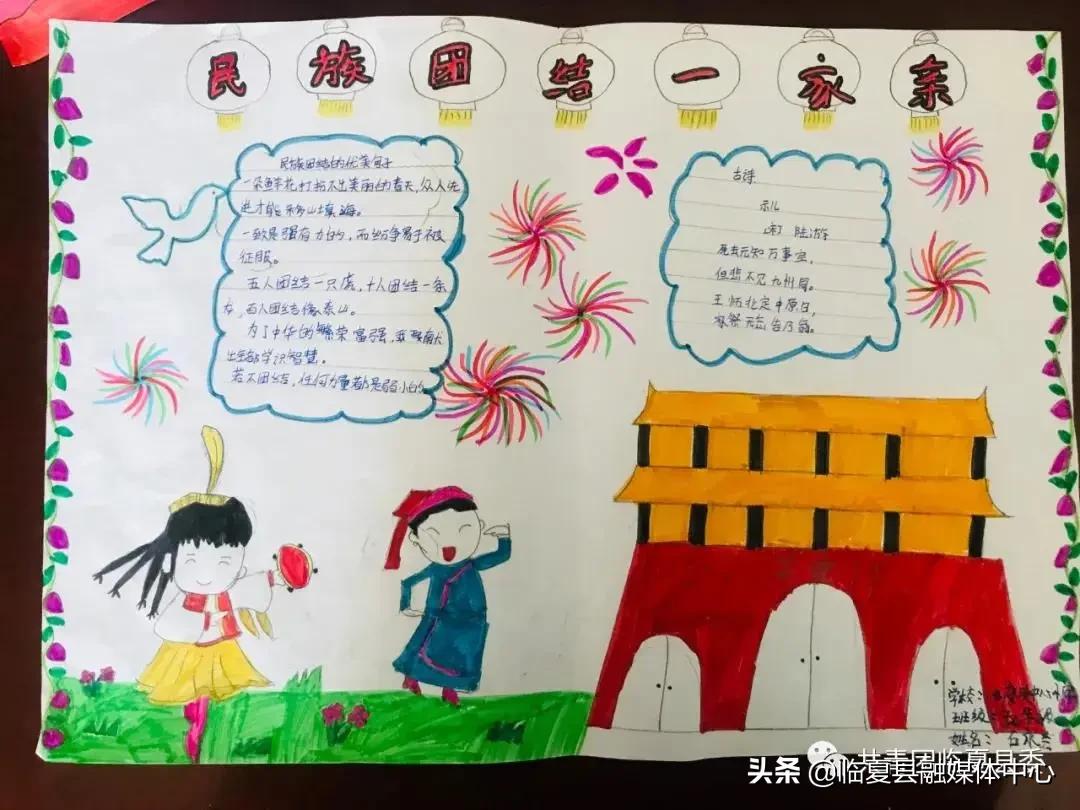 民族团结一家亲
民族团结的优美句子
一朵鲜花打扮不出美丽的春天，众人先
进才能移山填海。
一致是强有力的，而纷争易于被
征服。
五人团结一只虎，十人团结一条
龙，百人团结像泰山。
为了中华的繁荣富强，献
出全部学识智慧。
若不团结，任何力量都是弱小的
古诗
示儿
宋 陆游
死去元知万事空，
但悲不见九州同。
王师北定中原日，
家祭无忘告乃翁。
学校：
班级：
姓名：石
共青团临夏县委
头条 @临夏县融媒体中心